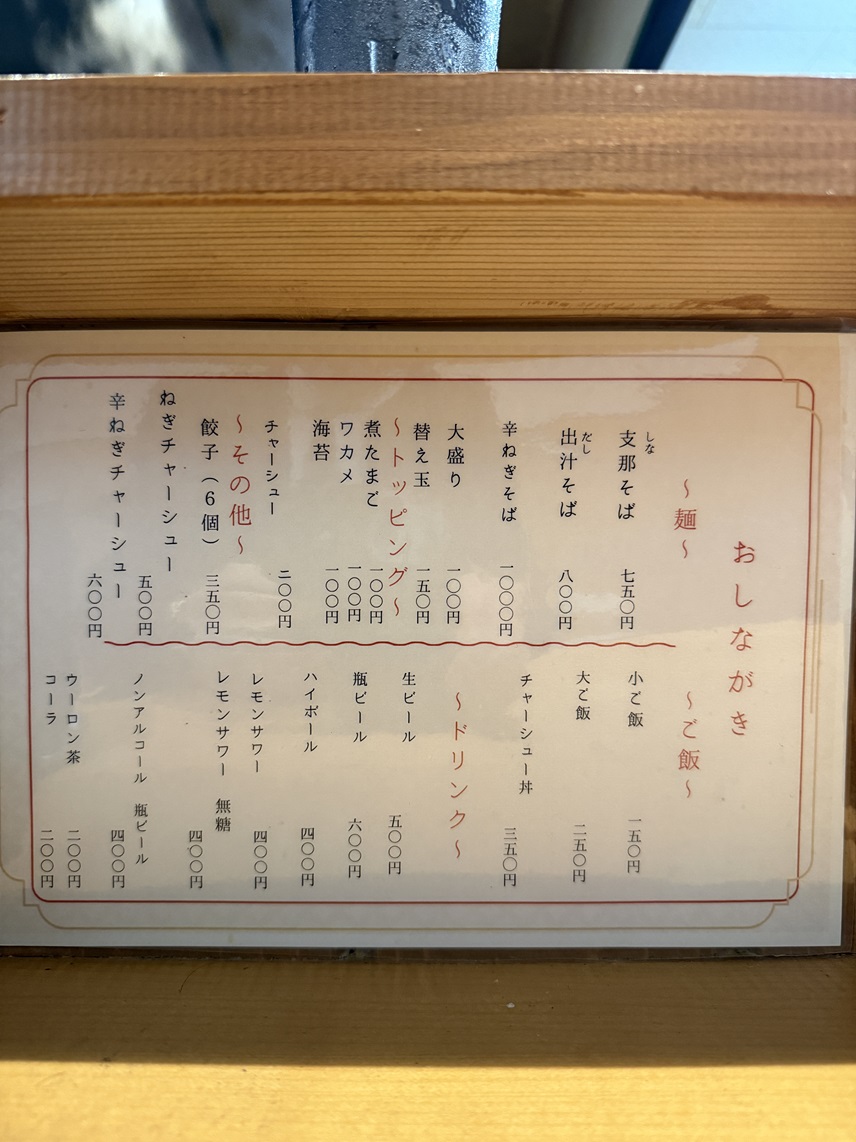 おしながき
～麺～
支那そば 七五〇円
しな
出汁そば 八〇〇円
だし
辛ねぎそば 一〇〇〇円
大盛り 一〇〇円
替え玉 一五〇円
～トッピング～
煮たまご 一〇〇円
ワカメ 一〇〇円
海苔 一〇〇円
チャーシュー 二〇〇円
～その他～
餃子（6個） 三五〇円
ねぎチャーシュー 五〇〇円
辛ねぎチャーシュー 六〇〇円
～ご飯～
小ご飯 一五〇円
大ご飯 二五〇円
チャーシュー丼 三五〇円
～ドリンク～
生ビール 五〇〇円
瓶ビール 六〇〇円
ハイボール 四〇〇円
レモンサワー 四〇〇円
レモンサワー 無糖 四〇〇円
ノンアルコール 瓶ビール 四〇〇円
ウーロン茶 二〇〇円
コーラ 二〇〇円